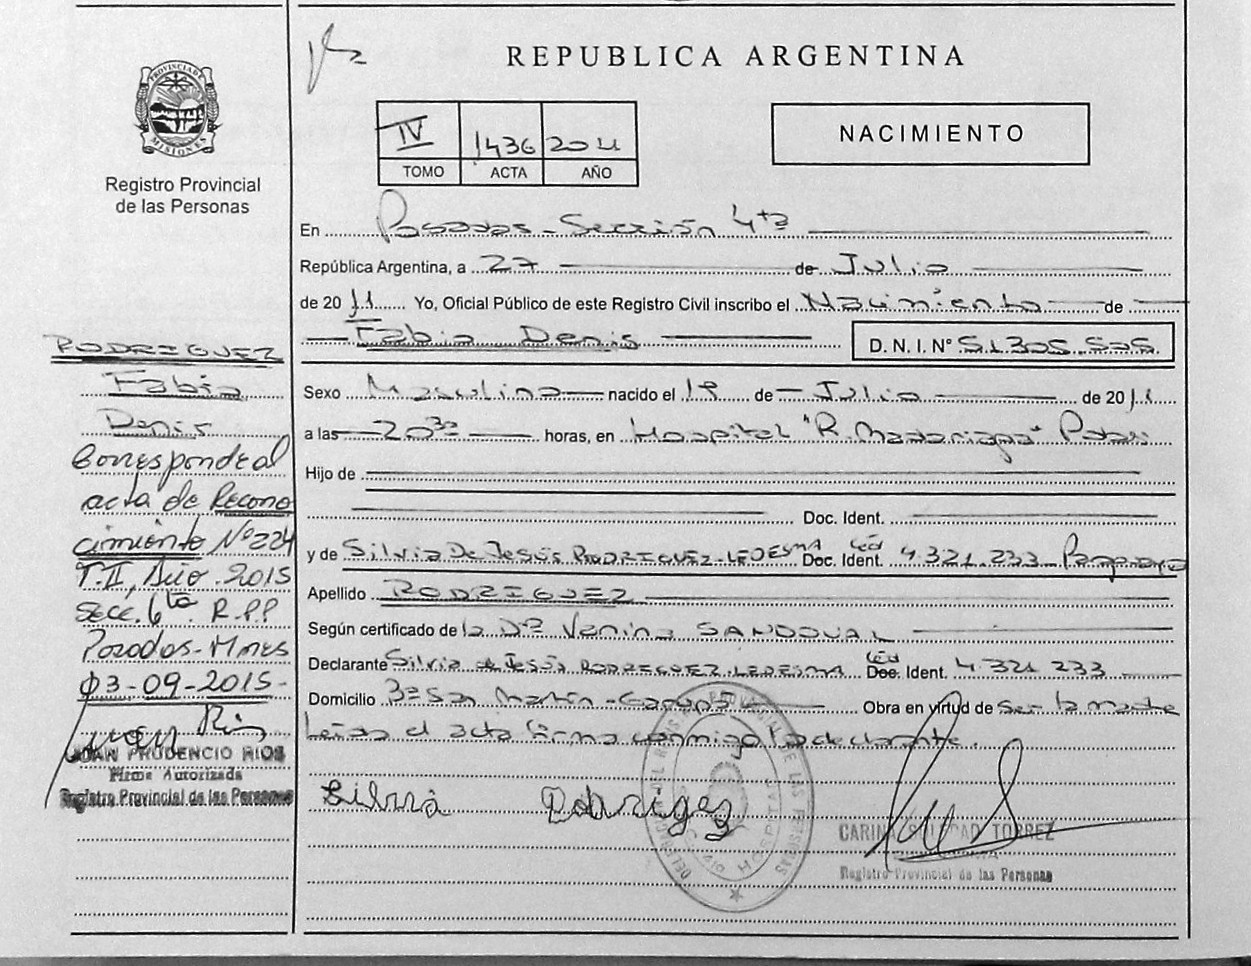 PROVINCIA DE
MISIONES
Registro Provincial
de las Personas
REPUBLICA ARGENTINA
IV 1436 2011
TOMO ACTA AÑO
NACIMIENTO
En Posadas - Sección 4ta
República Argentina, a 27 de Julio
de 2011 Yo, Oficial Público de este Registro Civil inscribo el Nacimiento de
Fabio Denis
D. N. I. N° 51.305.505
Sexo Masculino nacido el 19 de Julio de 2011
a las 20 30 horas, en Hospital "R. Madariaga" Pdas
Hijo de
Doc. Ident.
y de Silvia De Jesús RODRIGUEZ-LEDESMA Céd Doc. Ident. 4.321.233 Paraguaya
Apellido RODRIGUEZ
Según certificado de la Dra Vanina SANDOVAL
Declarante Silvia de Jesús RODRIGUEZ-LEDESMA Céd Doc. Ident. 4.321 233
Domicilio Bº San Martín - Garupá Obra en virtud de ser la madre
Leída el acta firma conmigo la declarante.
Silvia Rodrigez
CARINA SOLEDAD TORREZ
Registro Provincial de las Personas
RODRIGUEZ
Fabio
Denis
Corresponde al
acta de Recono
cimiento Nº 224
T.II, Año 2015
Secc. 6ta. R.P.P
Posadas - Mnes
03-09-2015-
JUAN PRUDENCIO RIOS
Firma Autorizada
Registro Provincial de las Personas